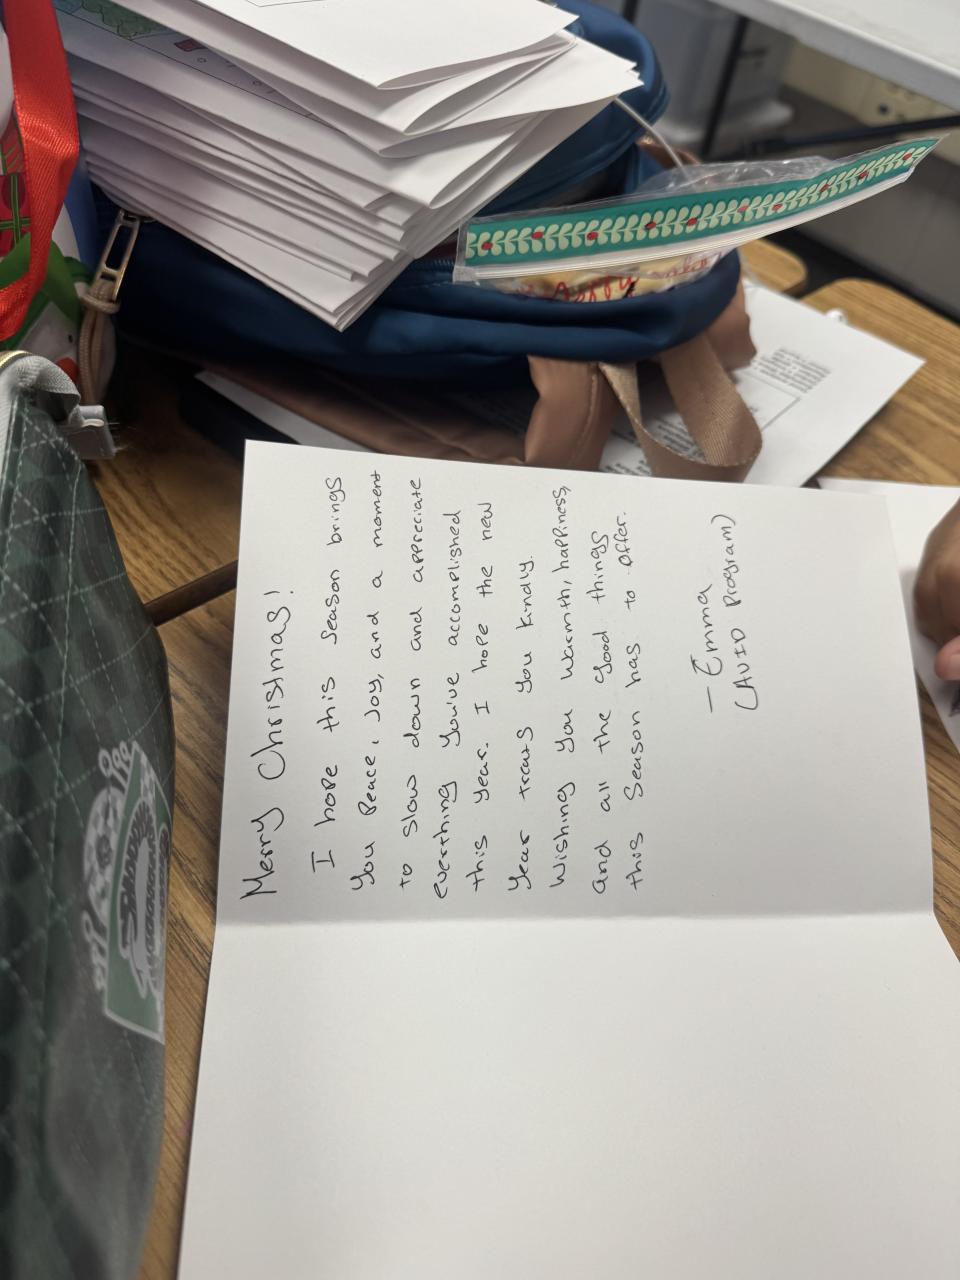 Merry Christmas!
I hope this season brings
you peace, joy, and a moment
to slow down and appreciate
everthing you've accomplished
this year. I hope the new
year treats you kindly.
Wishing you warmth, happiness,
and all the good things
this season has to offer.
— Emma
(AVID Program)